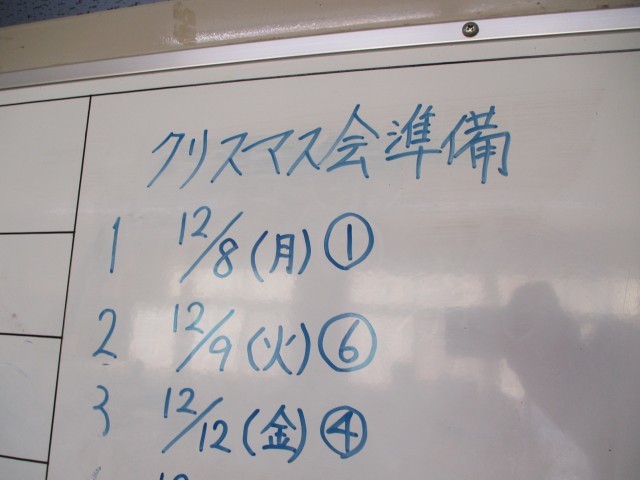 クリスマス会準備
1 12/8(月)①
2 12/9(火)⑥
3 12/12(金)④